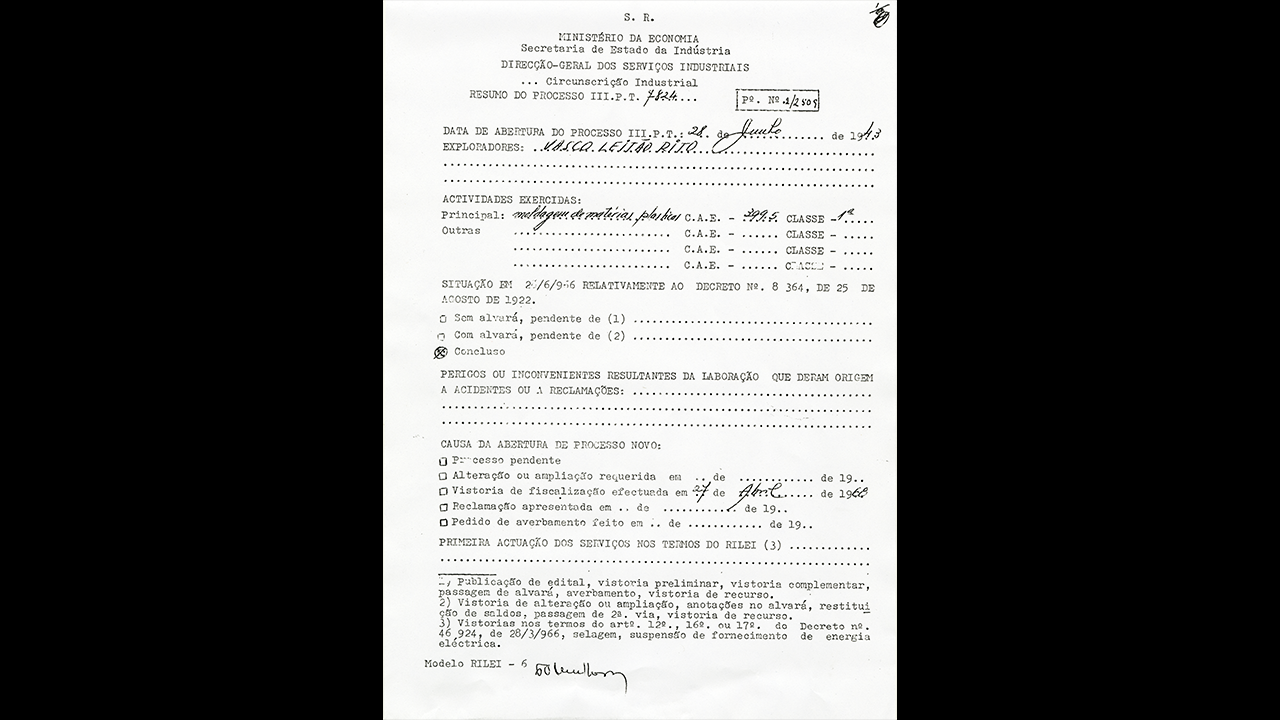 S. R.
MINISTÉRIO DA ECONOMIA
Secretaria de Estado da Indústria
DIRECÇÃO-GERAL DOS SERVIÇOS INDUSTRIAIS
... Circunscrição Industrial
RESUMO DO PROCESSO III.P.T. 7824...
Pº. Nº.1/2505
DATA DE ABERTURA DO PROCESSO III.P.T.: 28.. de Junho............ de 1943
EXPLORADORES: ..VASCO LEITÃO RITO..............................
................................................................
................................................................
ACTIVIDADES EXERCIDAS:
Principal: moldagem de matérias plasticas C.A.E. - 399.5. CLASSE -1ª....
Outras ........................ C.A.E. - ...... CLASSE - .....
........................ C.A.E. - ...... CLASSE - .....
........................ C.A.E. - ...... CLASSE - .....
SITUAÇÃO EM 28/6/966 RELATIVAMENTE AO DECRETO Nº. 8 364, DE 25 DE
AGOSTO DE 1922.
Sem alvará, pendente de (1) ....................................
Com alvará, pendente de (2) ....................................
Concluso
PERIGOS OU INCONVENIENTES RESULTANTES DA LABORAÇÃO QUE DERAM ORIGEM
A ACIDENTES OU A RECLAMAÇÕES: ....................................
................................................................
................................................................
CAUSA DA ABERTURA DE PROCESSO NOVO:
Processo pendente
Alteração ou ampliação requerida em .. de ............ de 19..
Vistoria de fiscalização efectuada em 27 de Abril...... de 1968
Reclamação apresentada em .. de ............ de 19..
Pedido de averbamento feito em .. de ............ de 19..
PRIMEIRA ACTUAÇÃO DOS SERVIÇOS NOS TERMOS DO RILEI (3) ............
................................................................
1) Publicação de edital, vistoria preliminar, vistoria complementar,
passagem de alvará, averbamento, vistoria de recurso.
2) Vistoria de alteração ou ampliação, anotações no alvará, restitui
ção de saldos, passagem de 2ª. via, vistoria de recurso.
3) Vistorias nos termos do artº. 12º., 16º. ou 17º. do Decreto nº.
46 924, de 28/3/966, selagem, suspensão de fornecimento de energia
eléctrica.
Modelo RILEI - 6